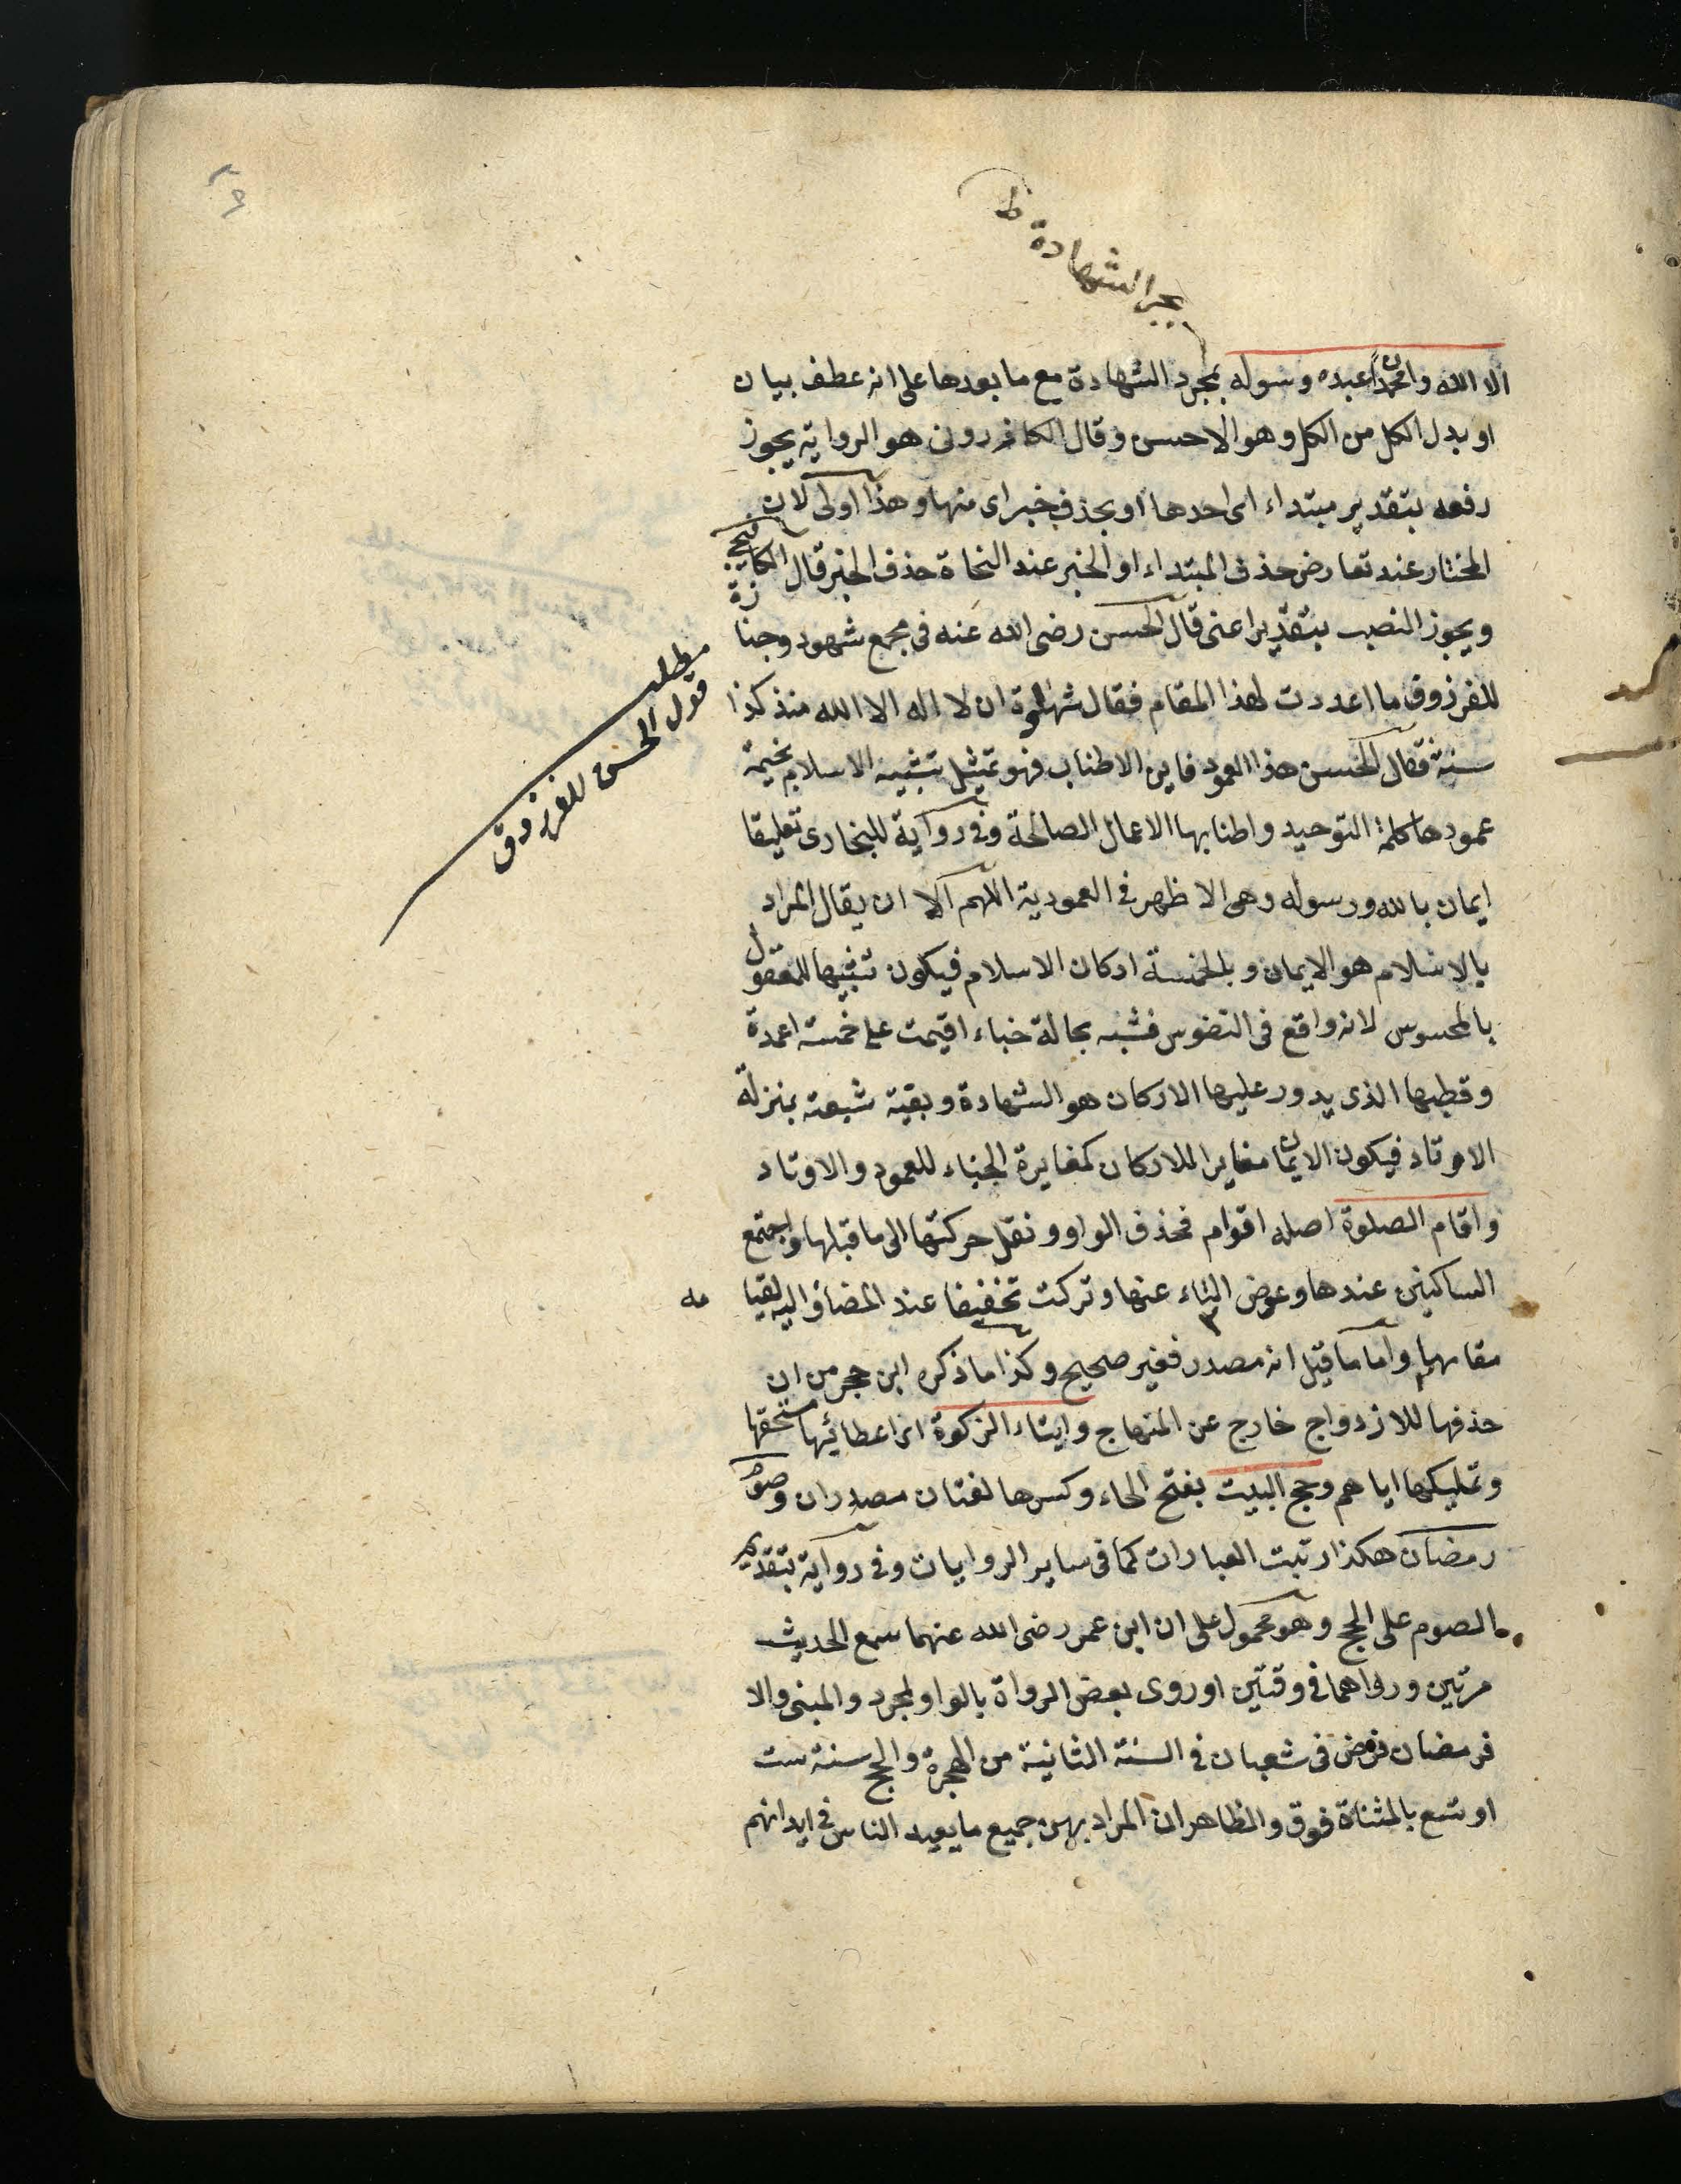 بجر الشهادة ط
الا الله وان محمدا عبده ورسوله بمجرد الشهادة مع ما بعدها على انه عطف بيان
او بدل الكل من الكل وهو الاحسن وقال الكازرونى هو الرواية يجوز
رفعه بتقدير مبتداء اى احدها او بحذف خبر اى منها وهذا اولى لان
المختار عند تعارض حذف المبتداء او الخبر عند النحاة حذف الخبر قال الكافيجى
ويجوز النصب بتقدير اعنى قال الحسن رضى الله عنه فى مجمع شهود وجنازة
للفرزوق ما اعددت لهذا المقام فقال شهادة ان لا اله الا الله منذ كذا
سنة فقال الحسن هذا العمود فاين الاطناب فهو تمثيل تشبيه الاسلام بخيمة
عمودها كلمة التوحيد واطنابها الاعمال الصالحة وفى رواية للبخارى تعليقا
ايمان بالله ورسوله وهى الاظهر فى العمودية اللهم الا ان يقال المراد
بالاسلام هو الايمان وبالخمسة اركان الاسلام فيكون تشبيها للمعقول
بالمحسوس لانه واقع فى النفوس فشبه بحالة خباء اقيمت على خمسة اعمدة
وقطبها الذى يدور عليها الاركان هو الشهادة وبقية شعبه بمنزلة
الاوتاد فيكون الايمان مغايرا للاركان كمغايرة الخباء للعمود والاوتاد
واقام الصلوة اصله اقوام فحذف الواو ونقل حركتها الى ما قبلها واجتمع
الساكنين عندها وعوض التاء عنها وتركت تخفيفا عند المضاف اليه لقيامه
مقامها واما ما قيل انه مصدر فغير صحيح وكذا ما ذكره ابن حجر من ان
حذفها للازدواج خارج عن المنهاج وايتاء الزكوة اى اعطائها مستحقها
وتمليكها اياهم وحج البيت بفتح الحاء وكسرها لغتان مصدران وصوم
رمضان هكذا رتبت العبارات كما فى ساير الروايات وفى رواية بتقديم
الصوم على الحج وهو محمول على ان ابن عمر رضى الله عنهما سمع الحديث
مرتين ورواهما فى وقتين او روى بعض الرواة بالواو لمجرد والمبنى والا
فرمضان فرض فى شعبان فى السنة الثانية من الهجرة والحج سنة ست
او تسع بالمثناة فوق والظاهر ان المراد بهن جميع ما يعبد الناس فى ابدانهم
مطلب
قول الحسن للفرزوق